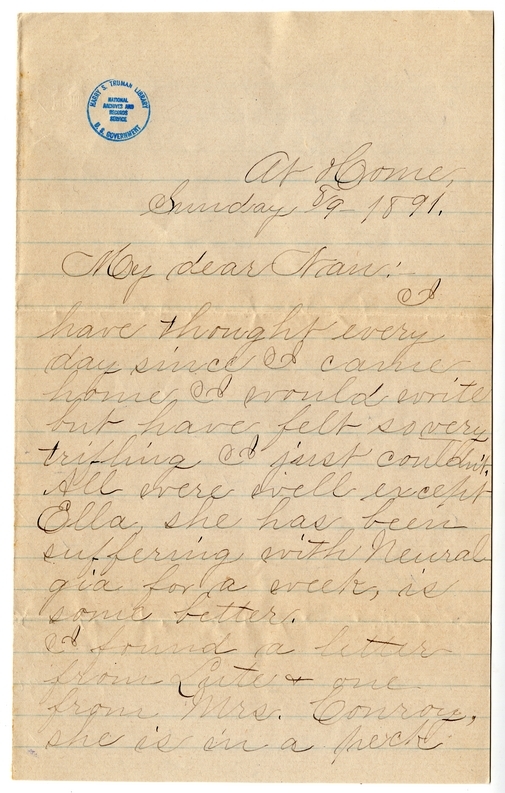 HARRY S. TRUMAN LIBRARY
NATIONAL
ARCHIVES AND
RECORDS
SERVICE
U. S. GOVERNMENT
At Home,
Sunday 8/9 - 1891.
My dear Nan:
I
have thought every
day since I came
home I would write
but have felt so very
trifling I just couldn't.
All were well except
Ella, she has been
suffering with Neural-
gia for a week, is
some better.
I found a letter
from Lute + one
from Mrs. Conroy,
she is in a peck